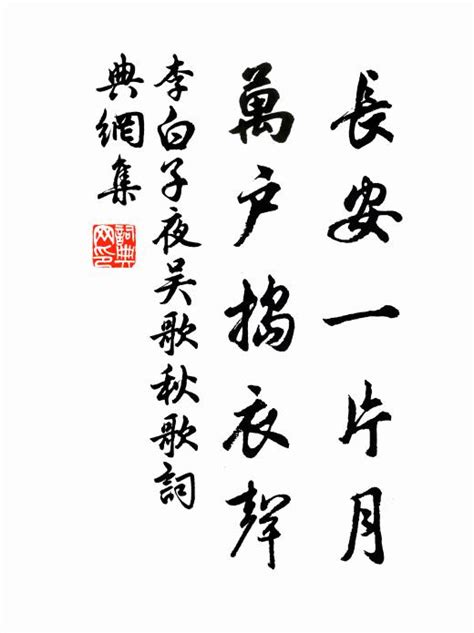 長安一片月
萬户搗衣聲
李白子夜吴歌秋歌詞
典網集
詞典網印